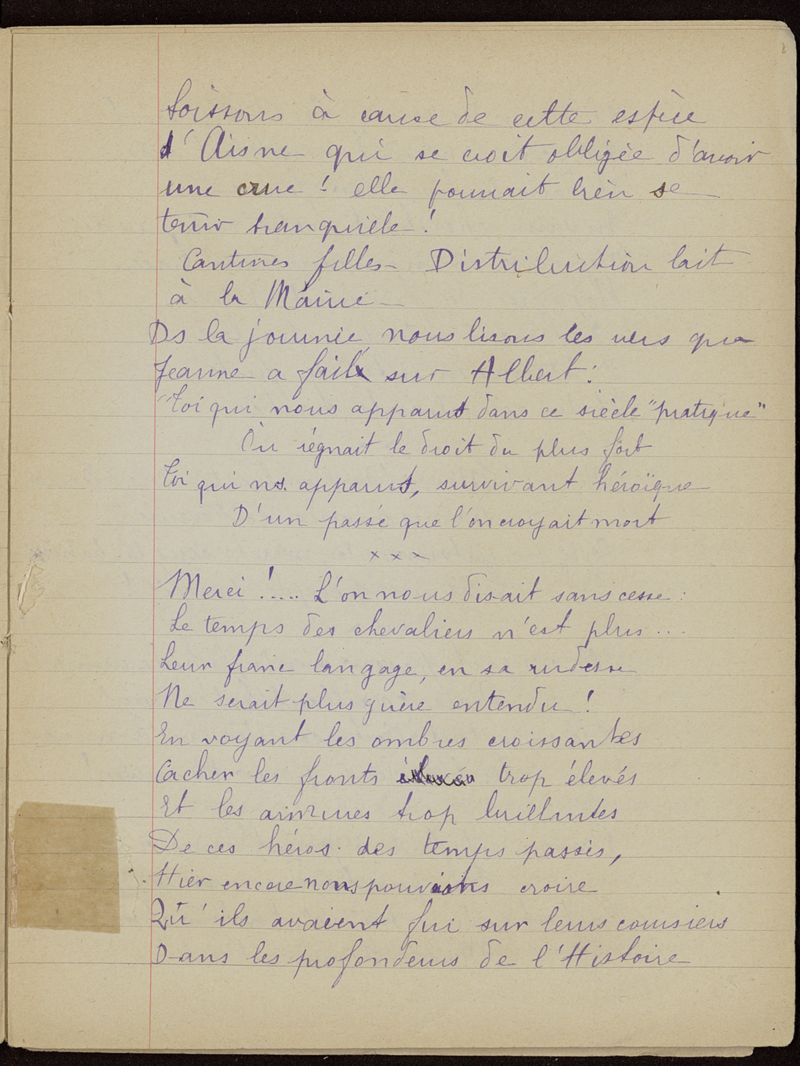 Soissons à cause de cette espèce
d'Aisne qui se croit obligée d'avoir
une crue ! elle pourrait bien se
tenir tranquille !
Cantines filles - Distribution lait
à la Mairie -
Ds la journée, nous lisons les vers que
Jeanne a fait sur Albert :
"Toi qui nous apparut dans ce siècle "pratique"
Où régnait le droit du plus fort
Toi qui ns. apparut, survivant héroïque
D'un passé que l'on croyait mort
x x x
Merci !.... L'on nous disait sans cesse :
Le temps des chevaliers n'est plus ...
Leur franc langage, en sa rudesse
Ne serait plus guère entendu !
En voyant les ombres croissantes
Cacher les fronts trop élevés
Et les armures trop brillantes
De ces héros des temps passés,
Hier encore nous pouvions croire
Qu'ils avaient fui sur leurs coursiers
Dans les profondeurs de l'Histoire